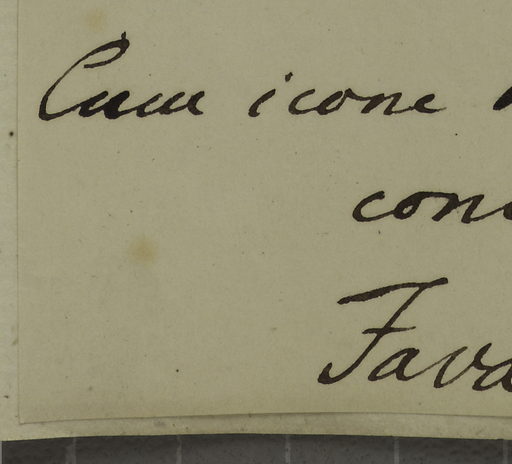 Cum icone
con
Fava